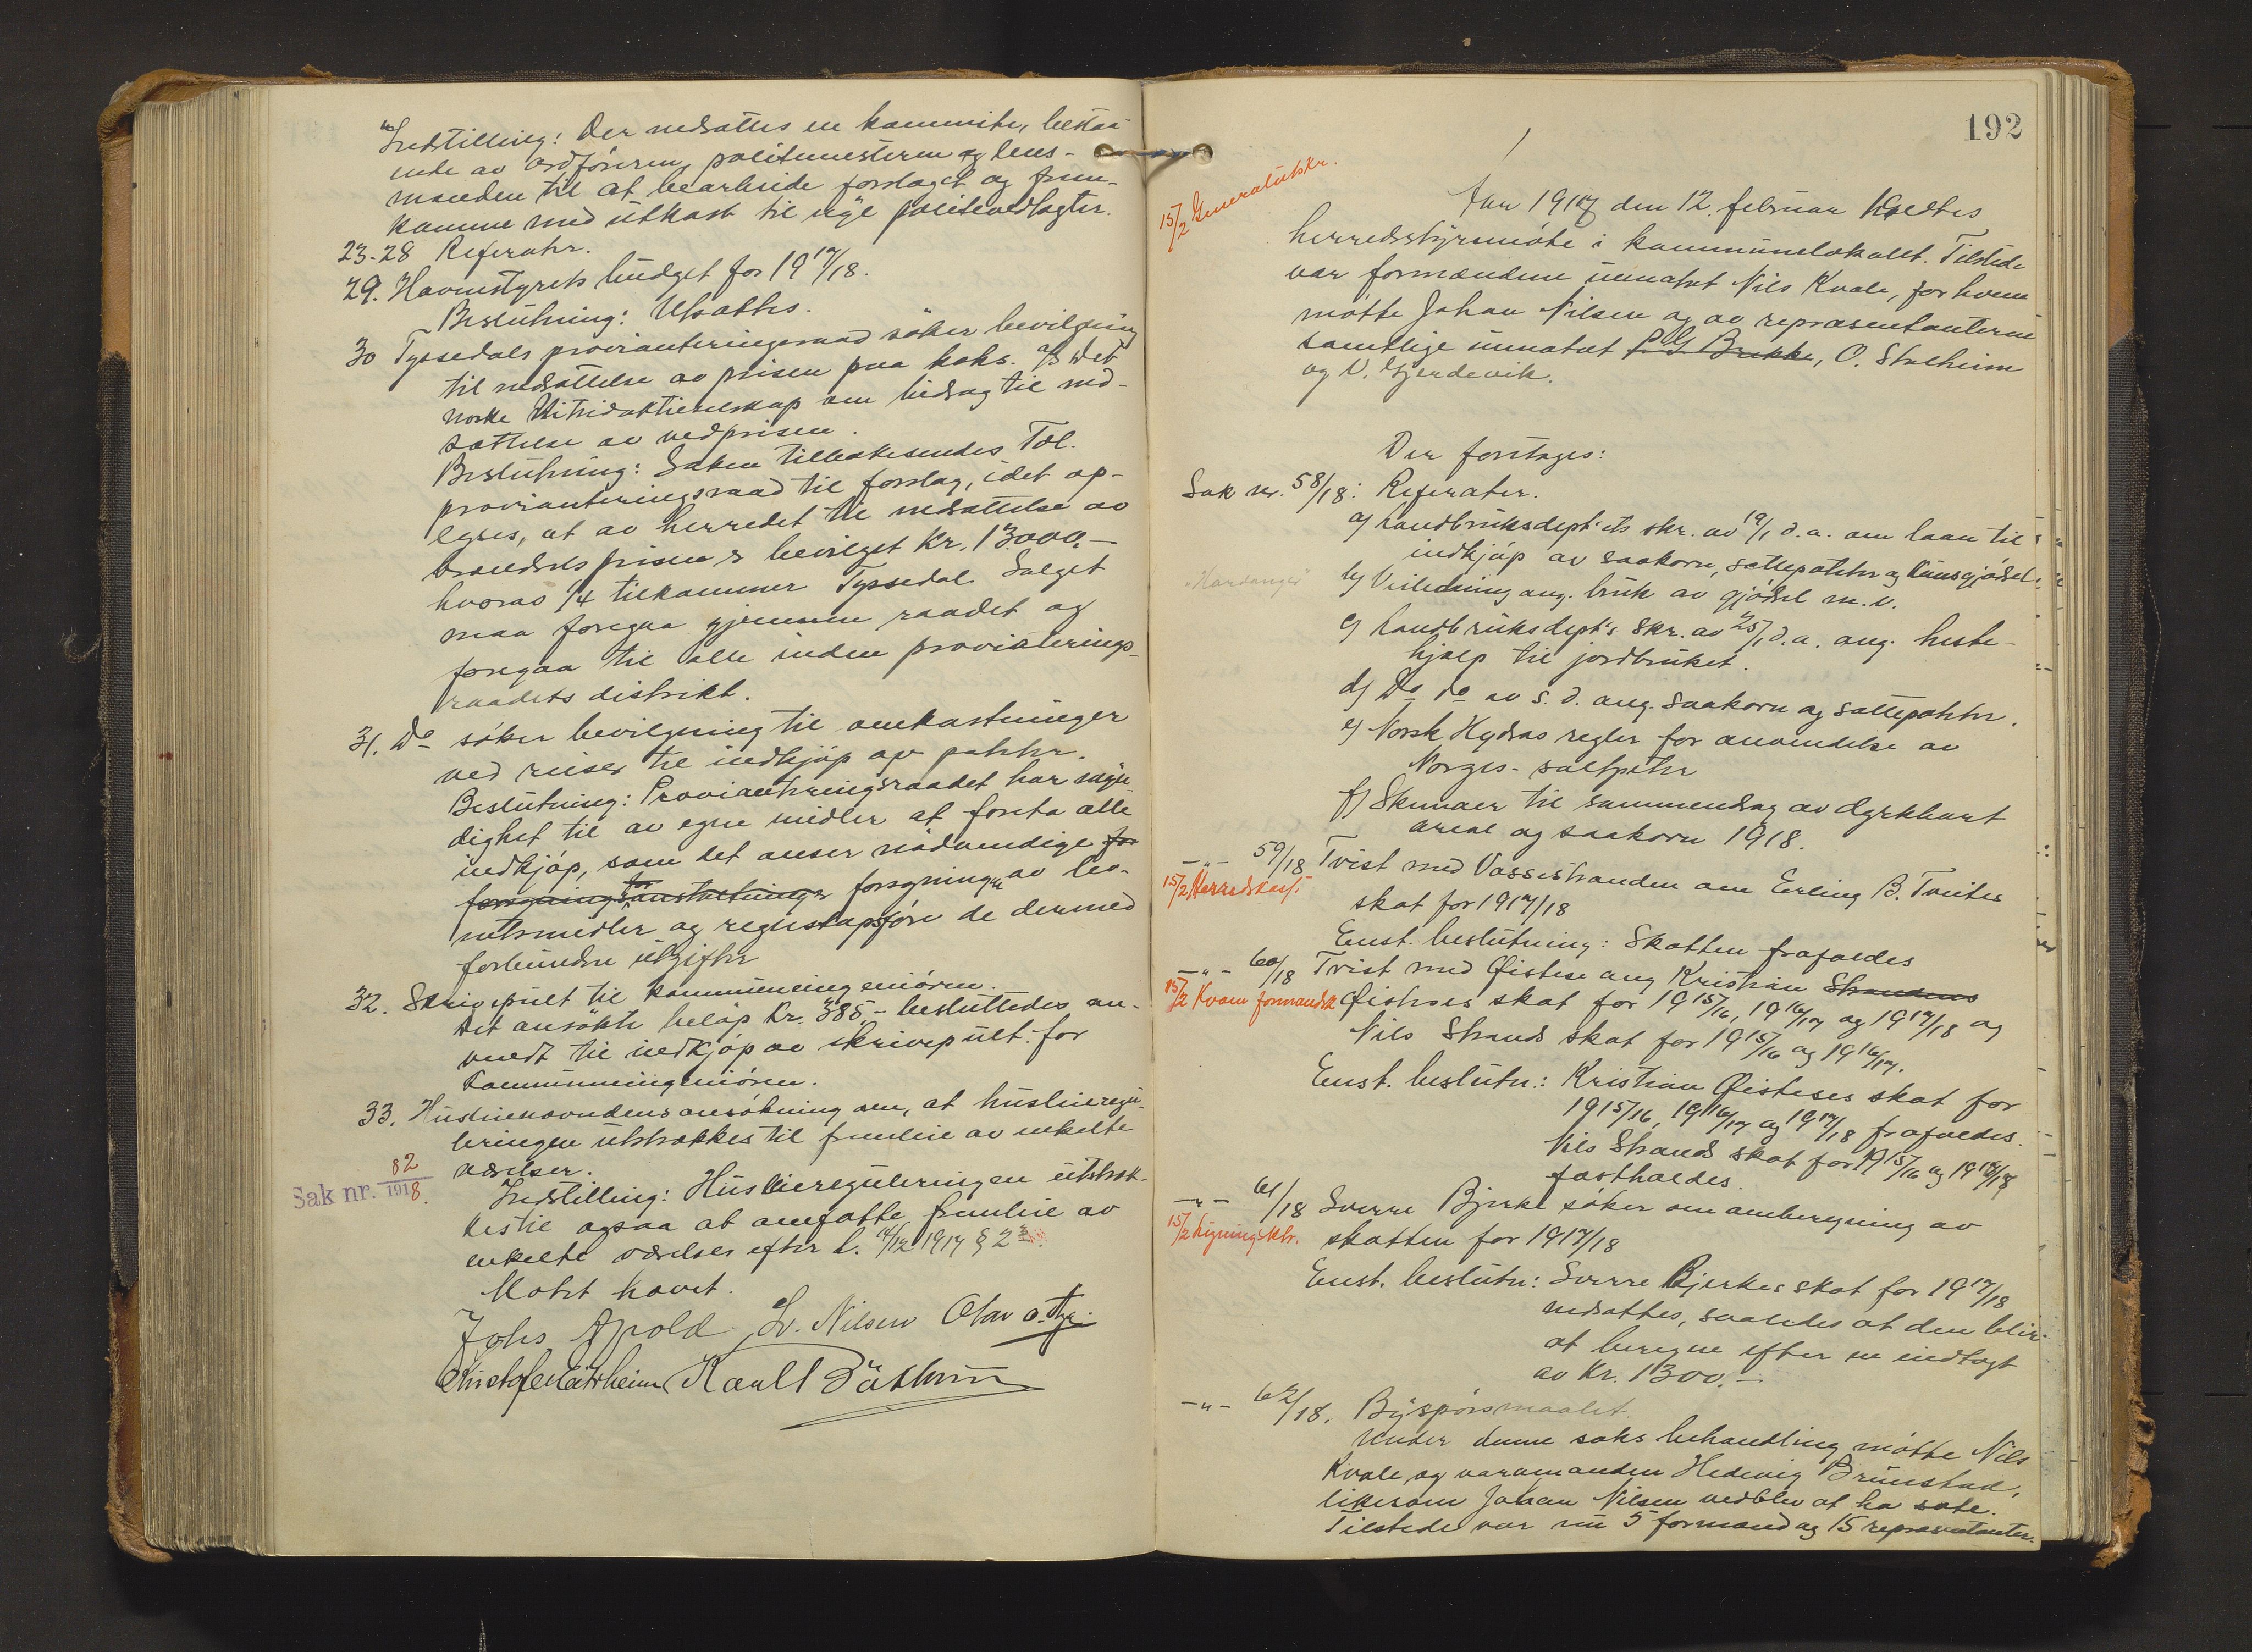 Indstilling: Der nedsættes en kommite, bestaa-
ende av ordföreren, politimesteren og lens-
manden til at bearbeide forslaget og frem-
komme med utkast til nye politivedtægter.
23-28 Referater.
29. Havnestyrets budget for 1917/18.
Beslutning: Utsættes.
30 Tyssedals provianteringsraad söker bevilgning
til nedsættelse av prisen paa koks. A/S Det
norske Nitridaktieselskap om bidrag til ned-
sættelse av vedprisen.
Beslutning: Saken tilbakesendes Tdl.
provianteringsraad til forslag, idet op-
lyses, at av herredet til nedsættelse av
brændselsprisen er bevilget Kr. 13000,-
hvorav 1/4 tilkommer Tyssedal. Salget
maa foregaa gjennem raadet og
foregaa til alle inden provianterings-
raadets distrikt.
31. Do söker bevilgning til omkostninger
ved reiser til indkjöp av poteter.
Beslutning: Provianteringsraadet har myn-
dighet til av egne midler at foreta alle
indkjöp, som det anser nödvendige for
for
forsyningsanstaltninger forsyningen av lev-
netsmidler og regnskapsföre de dermed
forbundne utgifter
32. Skrivepult til kommuneingeniören.
Det ansökte belöp Kr. 385,- besluttedes an-
vendt til indkjöp av skrivepult for
Kommuneingeniören.
33. Huslienevndens ansökning om, at husleieregu-
leringen utstrækkes til fremleie av enkelte
værelser.
Sak nr. 82/1918.
Indstilling: Husleiereguleringen utstræk-
kes til ogsaa at omfatte fremleie av
enkelte værelser efter l. 14/12 1917 § 2
Møtet hævet.
Johs Apold L. Nilsen Olav
Kristofer Mannsheim Karl
192
15/2 Generalutskr.
Aar 1917 den 12. februar holdtes
herredsstyremöte i kommunelokalet. Tilstede
var formændene undtat Nils Kvale, for hvem
mötte Johan Nilsen og av repræsentanterne
samtlige undtat P. G. Brekke, O. Stalheim
og V. Gjerdevik.
Der foretages:
Sak nr. 58/18: Referater.
a) Landbruksdept'ets skr. av 19/1 d.a. om laan til
indkjöp av saakorn, sættepoteter og kunstgjödsel.
"Hardanger"
b) Veiledning ang. bruk av gjödsel m.v.
c) Landbruksdept's skr. av 25/1 d.a. ang. heste-
hjælp til jordbruket.
d) Do do av s.d. ang. saakorn og sættepoteter.
e) Norsk Hydros regler for anvendelse av
Norges-salpeter
f) Skemaer til sammendrag av dyrkbart
areal og saakorn 1918.
-"- 59/18 Tvist med Vossestranden om Erling B. Tveites
15/2 Herredskass.
skat for 1917/18
Enst. beslutning: Skatten frafaldes
-"- 60/18 Tvist med Øistese ang Kristian Strandens
15/2 Kvam formandsk
Øisteses skat for 1915/16, 1916/17 og 1917/18 og
Nils Strands skat for 1915/16 og 1916/17.
Enst. beslutn.: Kristian Øisteses skat for
1915/16, 1916/17 og 1917/18 frafaldes.
Nils Strands skat for 1915/16 og 1916/17
fastholdes.
-"- 61/18 Sverre Bjerke söker om omberegning av
15/2 Ligningsktr.
skatten for 1917/18
Enst. beslutn: Sverre Bjerkes skat for 1917/18
nedsættes, saaledes at den blir
at beregne efter en indtægt
av Kr. 1300.-
-"- 62/18. Byspörsmaalet.
Under denne saks behandling mötte Nils
Kvale og varamanden Hedevig Brunstad,
likesom Johan Nilsen vedblev at ha sæte.
Tilstede var nu 5 formænd og 15 repræsentanter.